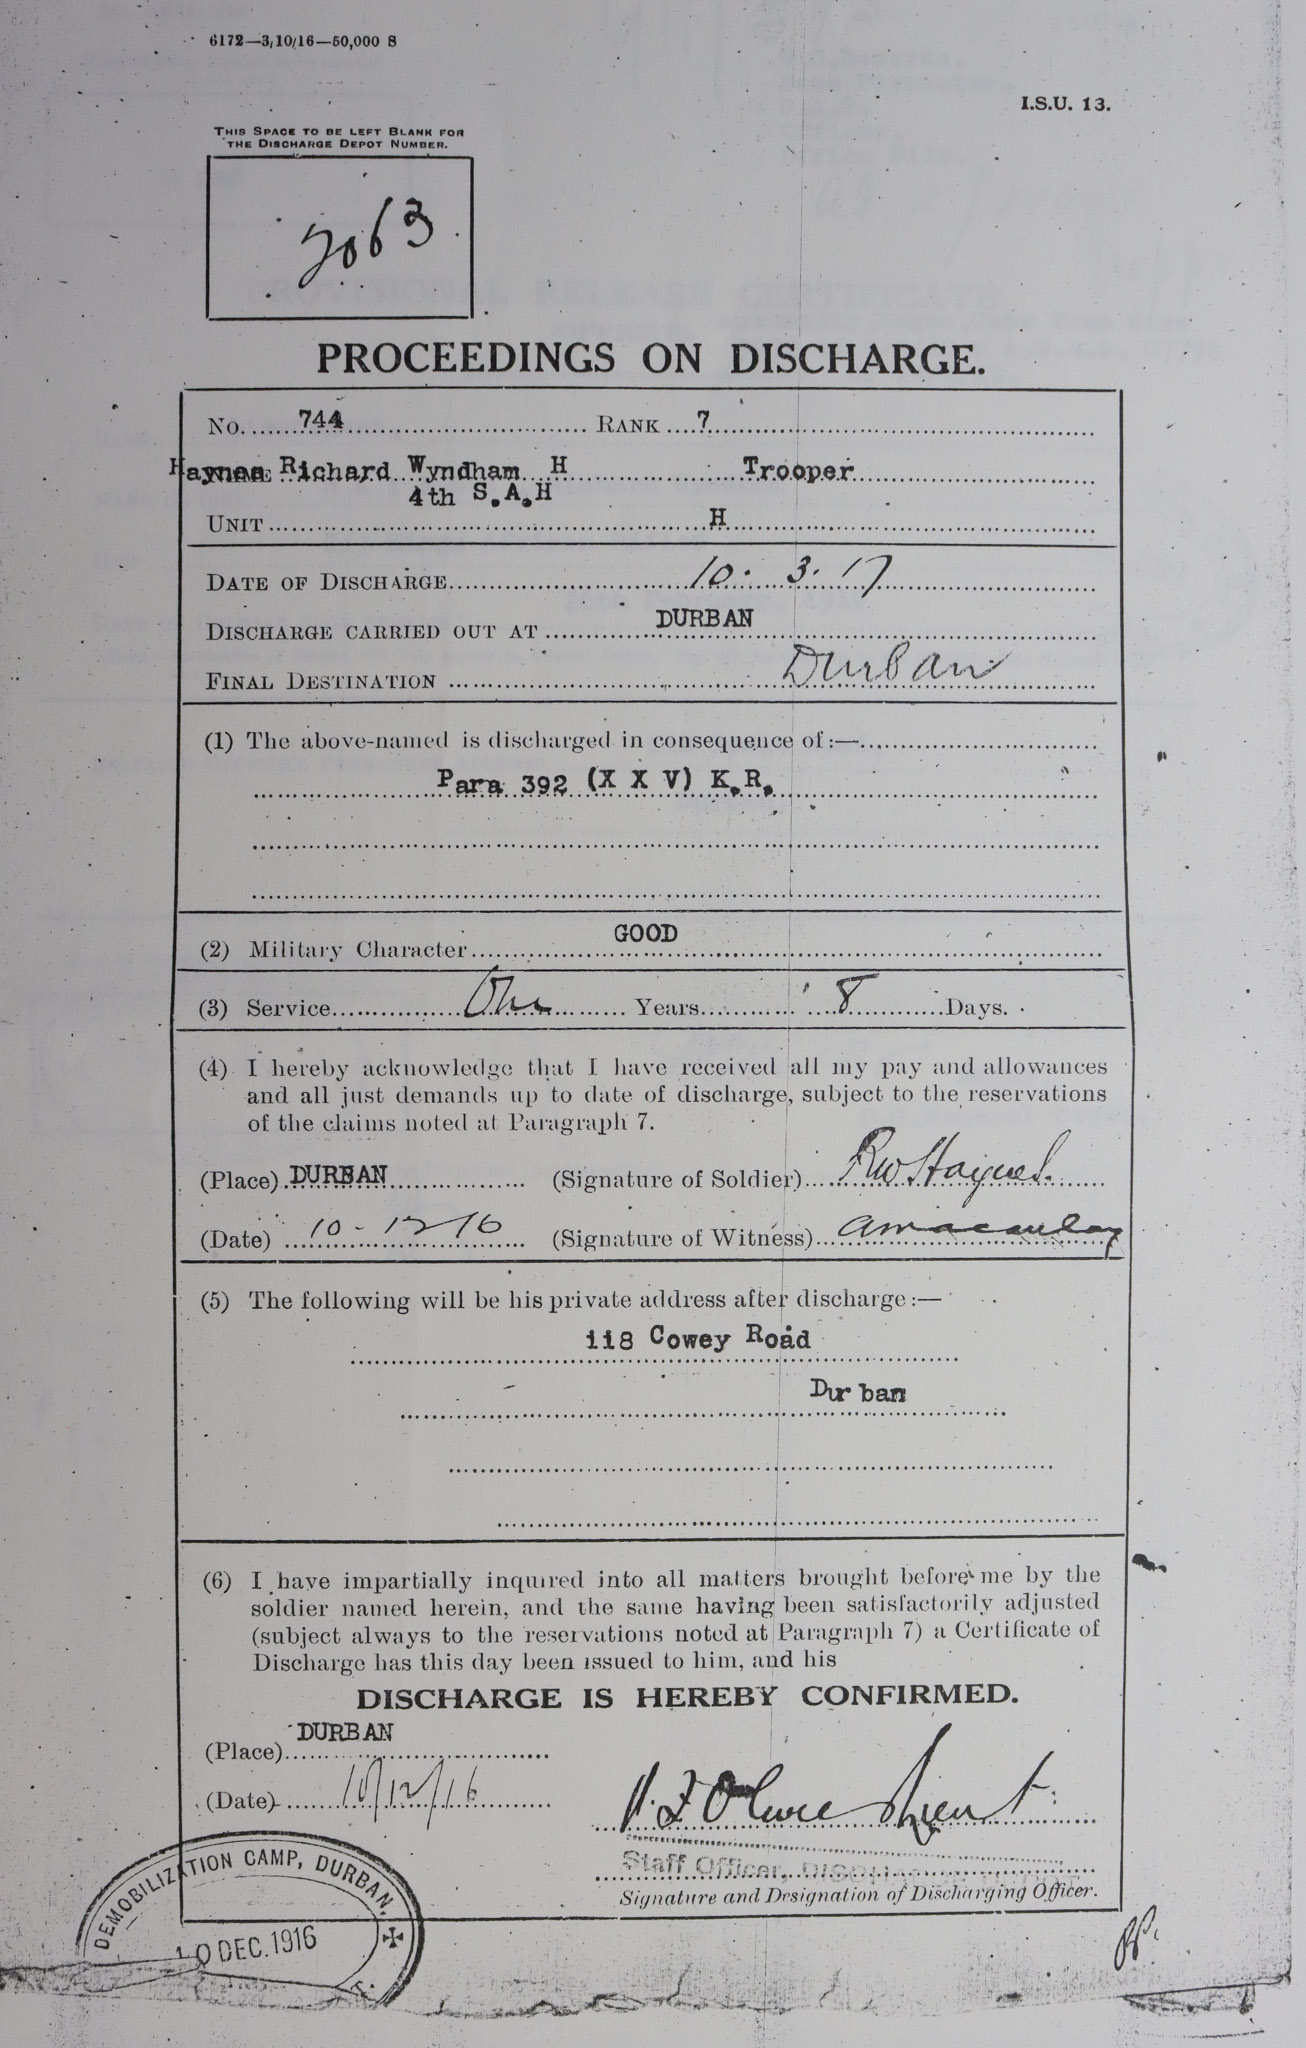 6172—3/10/16—50,000 S
I.S.U. 13.
THIS SPACE TO BE LEFT BLANK FOR
THE DISCHARGE DEPOT NUMBER.
7063
PROCEEDINGS ON DISCHARGE.
No. 744 RANK 7
Haynes Richard Wyndham H Trooper
4th S.A.H
UNIT H
DATE OF DISCHARGE 10. 3. 17
DISCHARGE CARRIED OUT AT DURBAN
FINAL DESTINATION Durban
(1) The above-named is discharged in consequence of:—
Para 392 (X X V) K.R.
(2) Military Character GOOD
(3) Service One Years 8 Days.
(4) I hereby acknowledge that I have received all my pay and allowances
and all just demands up to date of discharge, subject to the reservations
of the claims noted at Paragraph 7.
(Place) DURBAN (Signature of Soldier) RW Haynes.
(Date) 10-12-16 (Signature of Witness) A Macaulay
(5) The following will be his private address after discharge:—
118 Cowey Road
Durban
(6) I have impartially inquired into all matters brought before me by the
soldier named herein, and the same having been satisfactorily adjusted
(subject always to the reservations noted at Paragraph 7) a Certificate of
Discharge has this day been issued to him, and his
DISCHARGE IS HEREBY CONFIRMED.
(Place) DURBAN
(Date) 10/12/16
Staff Officer, DISCHARGE
Signature and Designation of Discharging Officer.
DEMOBILIZATION CAMP, DURBAN.
10 DEC. 1916